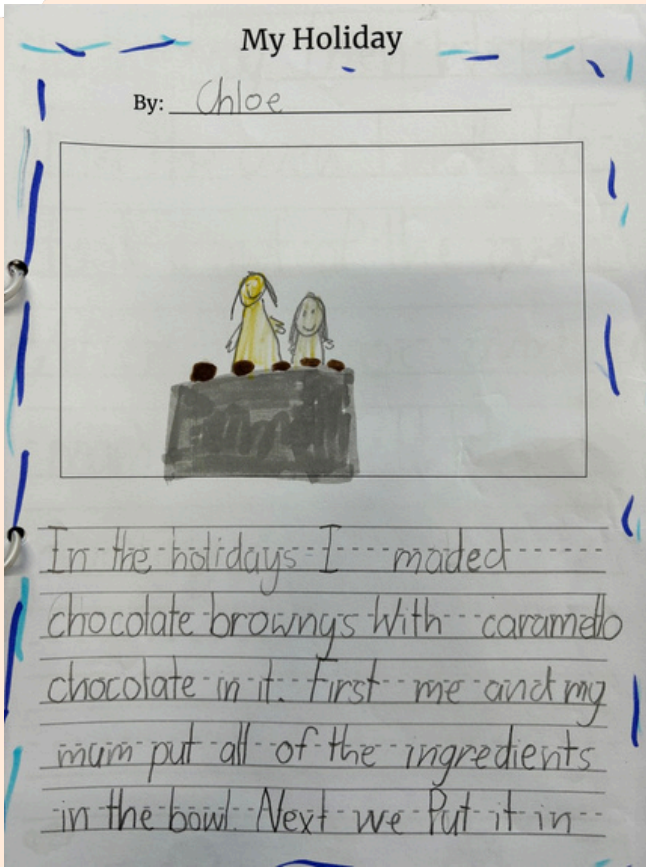 My Holiday
By: Chloe
In the holidays I maded
chocolate brownys With caramello
chocolate in it. First me and my
mum put all of the ingredients
in the bowl. Next we Put it in